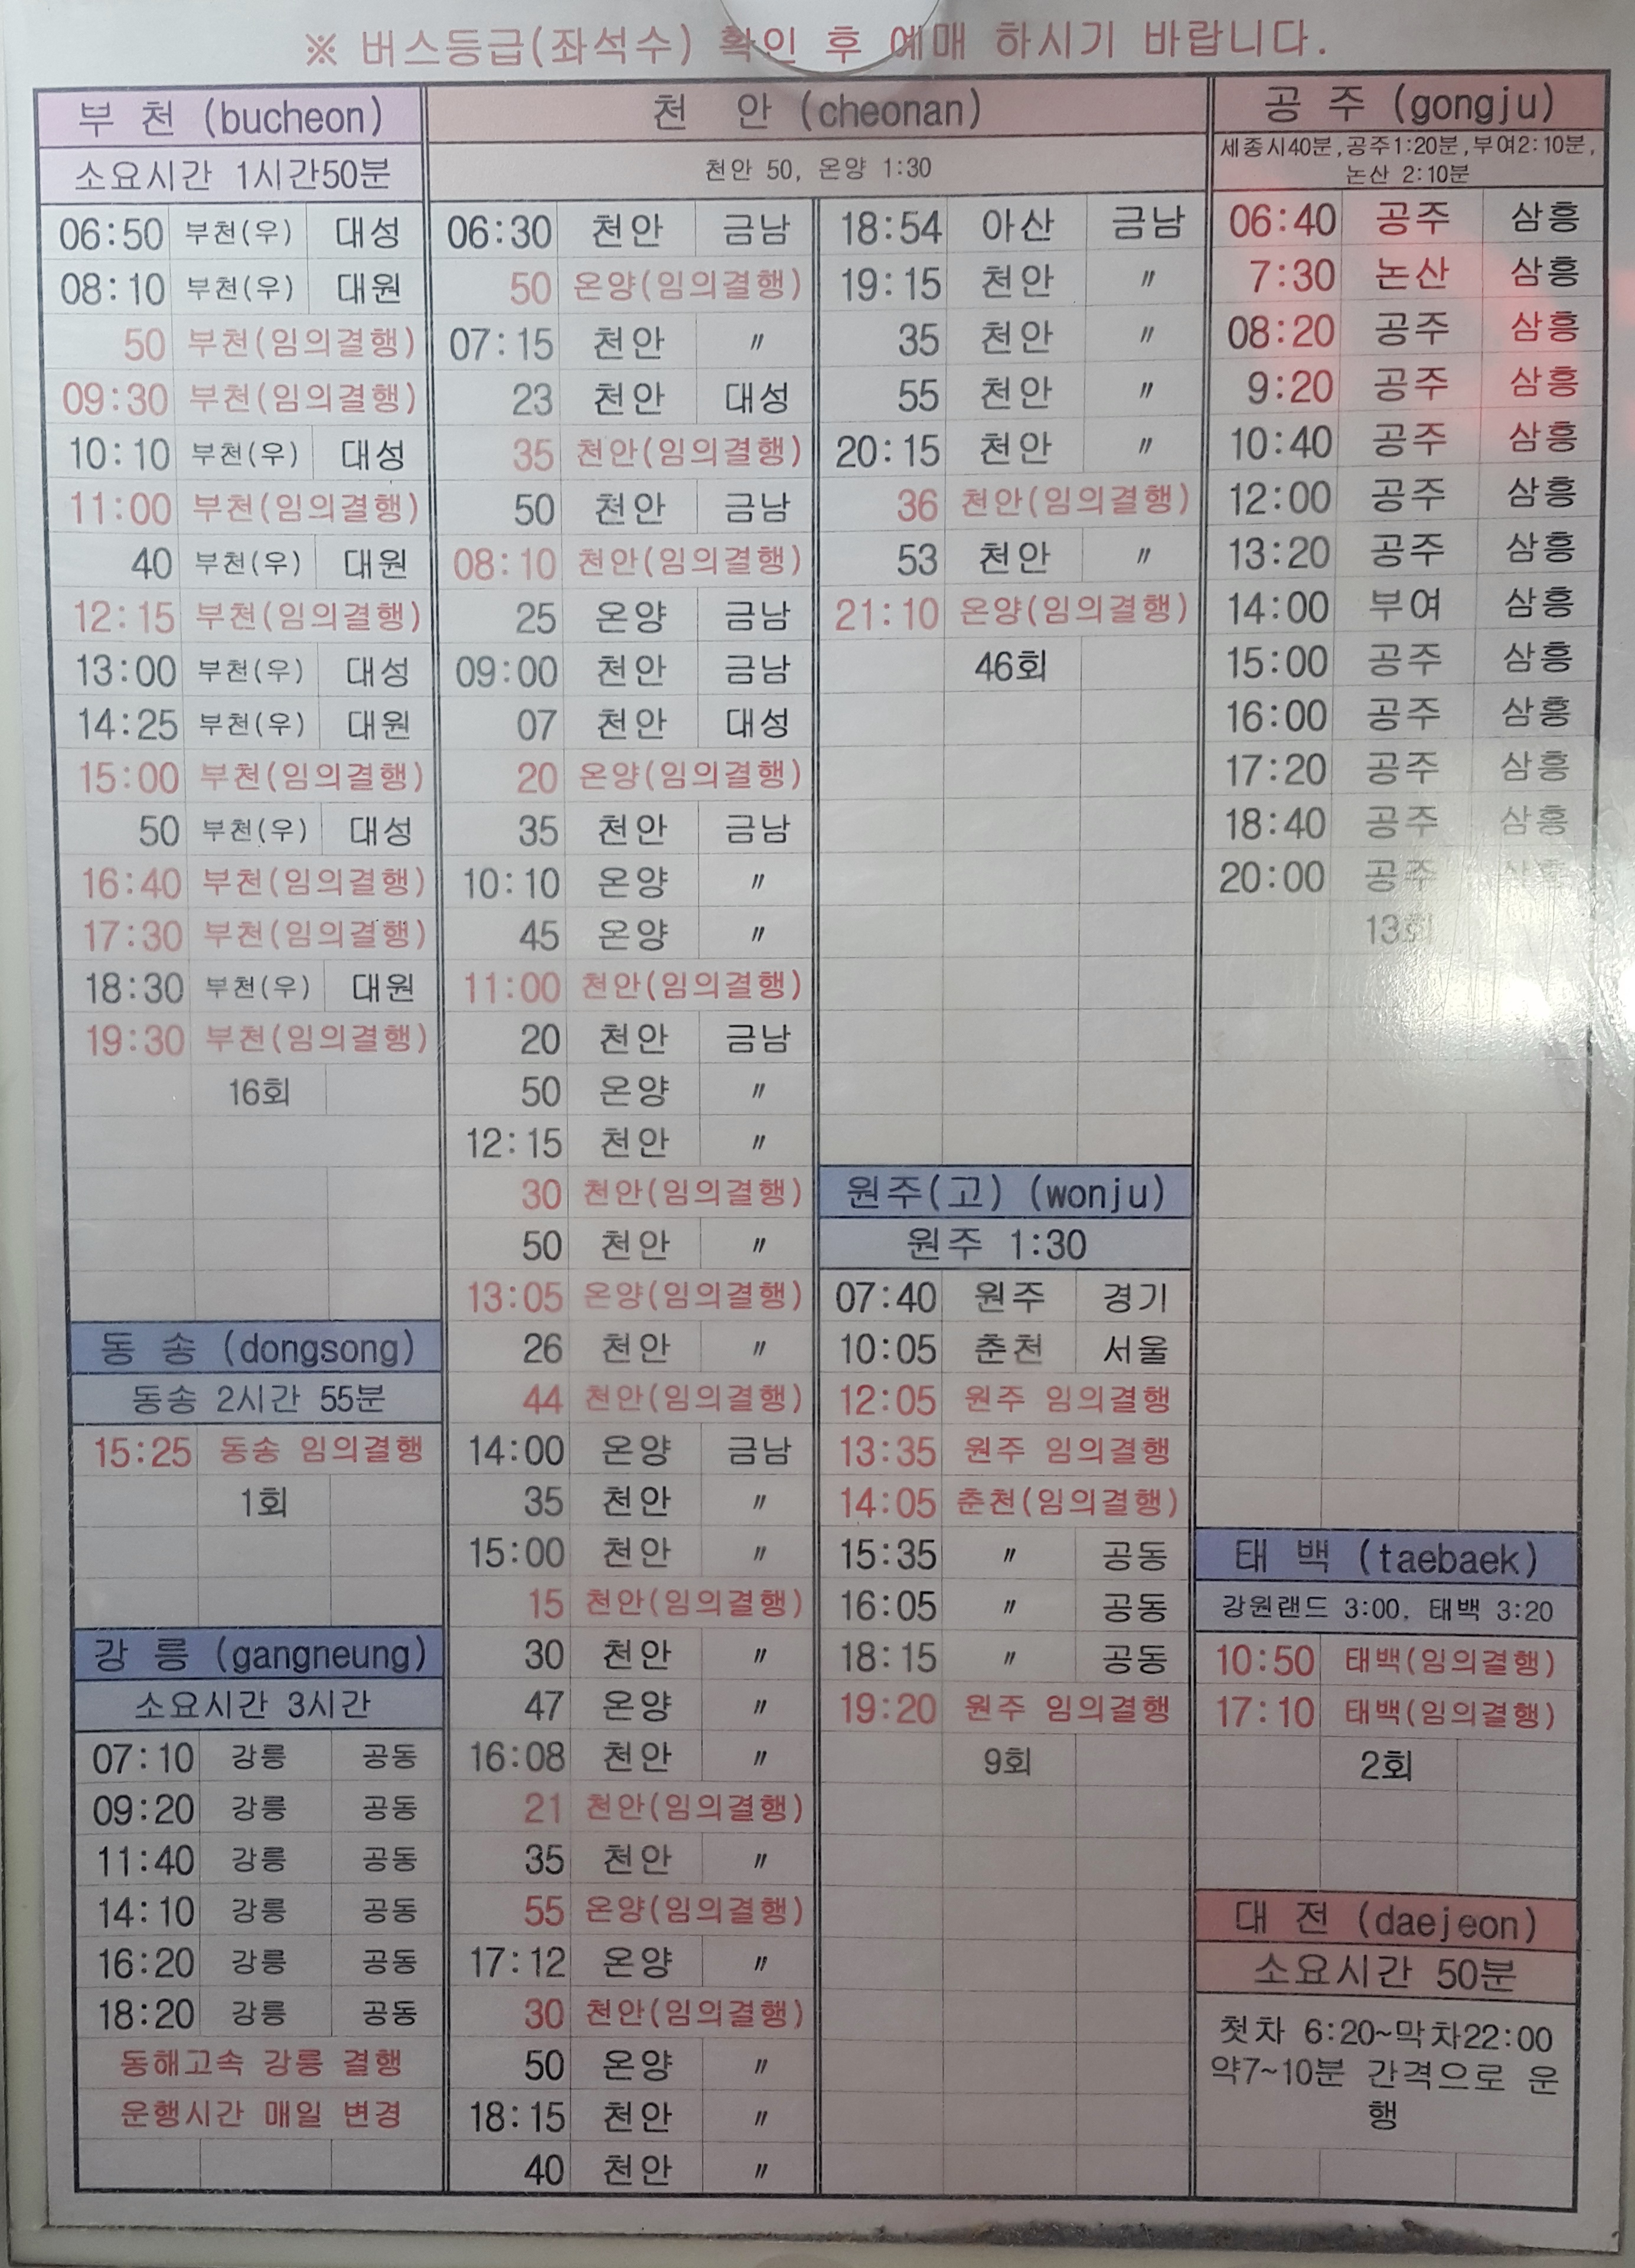 ※ 버스등급(좌석수) 확인 후 예매 하시기 바랍니다.
부 천 (bucheon)
소요시간 1시간50분
06:50 부천(우) 대성
08:10 부천(우) 대원
50 부천(임의결행)
09:30 부천(임의결행)
10:10 부천(우) 대성
11:00 부천(임의결행)
40 부천(우) 대원
12:15 부천(임의결행)
13:00 부천(우) 대성
14:25 부천(우) 대원
15:00 부천(임의결행)
50 부천(우) 대성
16:40 부천(임의결행)
17:30 부천(임의결행)
18:30 부천(우) 대원
19:30 부천(임의결행)
16회
동 송 (dongsong)
동송 2시간 55분
15:25 동송 임의결행
1회
강 릉 (gangneung)
소요시간 3시간
07:10 강릉 공동
09:20 강릉 공동
11:40 강릉 공동
14:10 강릉 공동
16:20 강릉 공동
18:20 강릉 공동
동해고속 강릉 결행
운행시간 매일 변경
천 안 (cheonan)
천안 50, 온양 1:30
06:30 천안 금남
50 온양(임의결행)
07:15 천안 〃
23 천안 대성
35 천안(임의결행)
50 천안 금남
08:10 천안(임의결행)
25 온양 금남
09:00 천안 금남
07 천안 대성
20 온양(임의결행)
35 천안 금남
10:10 온양 〃
45 온양 〃
11:00 천안(임의결행)
20 천안 금남
50 온양 〃
12:15 천안 〃
30 천안(임의결행)
50 천안 〃
13:05 온양(임의결행)
26 천안 〃
44 천안(임의결행)
14:00 온양 금남
35 천안 〃
15:00 천안 〃
15 천안(임의결행)
30 천안 〃
47 온양 〃
16:08 천안 〃
21 천안(임의결행)
35 천안 〃
55 온양(임의결행)
17:12 온양 〃
30 천안(임의결행)
50 온양 〃
18:15 천안 〃
40 천안 〃
18:54 아산 금남
19:15 천안 〃
35 천안 〃
55 천안 〃
20:15 천안 〃
36 천안(임의결행)
53 천안 〃
21:10 온양(임의결행)
46회
원주(고) (wonju)
원주 1:30
07:40 원주 경기
10:05 춘천 서울
12:05 원주 임의결행
13:35 원주 임의결행
14:05 춘천(임의결행)
15:35 〃 공동
16:05 〃 공동
18:15 〃 공동
19:20 원주 임의결행
9회
공 주 (gongju)
세종시40분,공주1:20분,부여2:10분,
논산 2:10분
06:40 공주 삼흥
7:30 논산 삼흥
08:20 공주 삼흥
9:20 공주 삼흥
10:40 공주 삼흥
12:00 공주 삼흥
13:20 공주 삼흥
14:00 부여 삼흥
15:00 공주 삼흥
16:00 공주 삼흥
17:20 공주 삼흥
18:40 공주 삼흥
20:00 공주 삼흥
13회
태 백 (taebaek)
강원랜드 3:00, 태백 3:20
10:50 태백(임의결행)
17:10 태백(임의결행)
2회
대 전 (daejeon)
소요시간 50분
첫차 6:20~막차22:00
약7~10분 간격으로 운
행